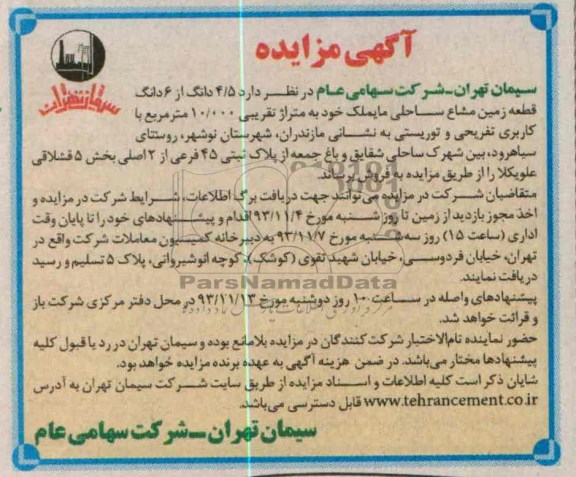 آگهی مزایده
سیمان تهران
سیمان تهران-شرکت سهامی عام در نظر دارد ۴/۵ دانگ از ۶ دانگ
قطعه زمین مشاع ساحلی مایملک خود به متراژ تقریبی ۱۰/۰۰۰ مترمربع با
کاربری تفریحی و توریستی به نشانی مازندران، شهرستان نوشهر، روستای
سیاهرود، بین شهرک ساحلی شقایق و باغ جمعه از پلاک ثبتی ۴۵ فرعی از ۲ اصلی بخش ۵ قشلاقی
علویکلا را از طریق مزایده به فروش برساند.
متقاضیان شرکت در مزایده می‌توانند جهت دریافت برگ اطلاعات، شرایط شرکت در مزایده و
اخذ مجوز بازدید از زمین تا روز شنبه مورخ ۹۳/۱۱/۴ اقدام و پیشنهادهای خود را تا پایان وقت
اداری (ساعت ۱۵) روز سه‌شنبه مورخ ۹۳/۱۱/۷ به دبیرخانه کمیسیون معاملات شرکت واقع در
تهران، خیابان فردوسی، خیابان شهید تقوی (کوشک)، کوچه انوشیروانی، پلاک ۵ تسلیم و رسید
دریافت نمایند.
ParsNamadData
پیشنهادهای واصله در ساعت ۱۰ روز دوشنبه مورخ ۹۳/۱۱/۱۳ در محل دفتر مرکزی شرکت باز
و قرائت خواهد شد.
حضور نماینده تام‌الاختیار شرکت کنندگان در مزایده بلامانع بوده و سیمان تهران در رد یا قبول کلیه
پیشنهادها مختار می‌باشد. در ضمن هزینه آگهی به عهده برنده مزایده خواهد بود.
شایان ذکر است کلیه اطلاعات و اسناد مزایده از طریق سایت شرکت سیمان تهران به آدرس
www.tehrancement.co.ir قابل دسترسی می‌باشد.
سیمان تهران-شرکت سهامی عام